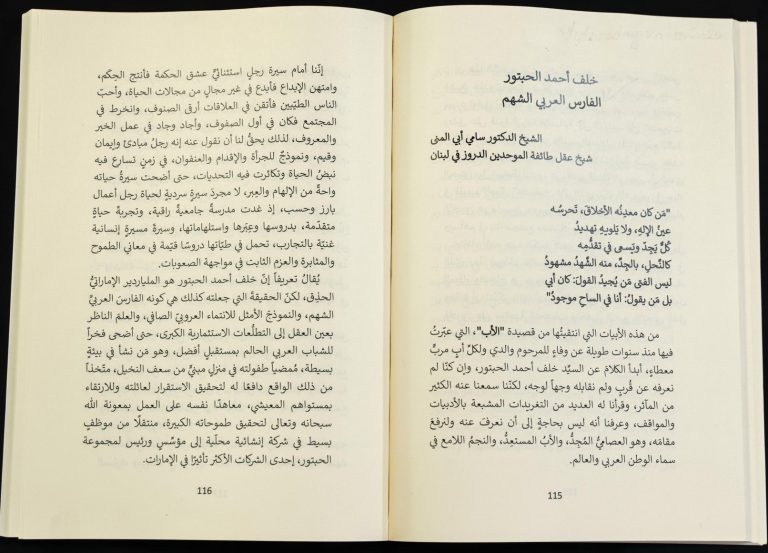 خلف أحمد الحبتور
الفارس العربي الشهم
الشيخ الدكتور سامي أبي المنى
شيخ عقل طائفة الموحدين الدروز في لبنان
"مَن كان معدِنُه الأخلاقَ، تَحرسُه
عينُ الإلهِ، ولا يَلويهِ تهديدُ
كلٌّ يَجِدُّ ويَسعى في تقدُّمِه
كالنَّحلِ، بالجِدِّ، منه الشَّهدُ مشهودُ
ليس الفتى مَن يُجيدُ القولَ: كان أبي
بل مَن يقولُ: أنا في الساحِ موجودُ"
من هذه الأبيات التي انتقيتُها من قصيدة "الأب"، التي عبّرتُ
فيها منذ سنوات طويلة عن وفاءٍ للمرحوم والدي ولكلّ أبٍ مربٍّ
معطاءٍ، أبدأ الكلامَ عن السيّد خلف أحمد الحبتور، وإن كنّا لم
نعرفه عن قُربٍ ولم نقابله وجهاً لوجه، لكنّنا سمعنا عنه الكثير
من المآثر، وقرأنا له العديد من التغريدات المشبعة بالأدبيات
والمواقف، وعرفنا أنه ليس بحاجةٍ إلى أن نعرفَ عنه ولنرفعَ
مقامَه، وهو العصاميُّ المُجِدُّ، والأبُ المستعِدُّ، والنجمُ اللامع في
سماء الوطن العربي والعالم.
115
إنّنا أمام سيرة رجلٍ استثنائيٍّ عشق الحكمة فأنتج الحِكَم،
وامتهن الإبداع فأبدع في غير مجالٍ من مجالات الحياة، وأحبّ
الناس الطيّبين فأتقن في العلاقات أرقى الصنوف، وانخرط في
المجتمع فكان في أول الصفوف، وأجاد وجاد في عمل الخير
والمعروف، لذلك يحقُّ لنا أن نقول عنه إنه رجلُ مبادئ وإيمان
وقيم، ونموذجٌ للجرأة والإقدام والعنفوان، في زمنٍ تسارع فيه
نبضُ الحياة وتكاثرت فيه التحديات، حتى أضحت سيرةُ حياته
واحةً من الإلهام والعِبر، لا مجردَ سيرةٍ سرديةٍ لحياة رجل أعمال
بارز وحسب، إذ غدت مدرسةً جامعيةً راقية، وتجربةَ حياةٍ
متقدّمة، بدروسها وعِبَرها واستلهاماتها، وسيرةَ مسيرةٍ إنسانية
غنيّة بالتجارب، تحمل في طيّاتها دروسًا قيّمة في معاني الطموح
والمثابرة والعزم الثابت في مواجهة الصعوبات.
يُقالُ تعريفاً إنّ خلف أحمد الحبتور هو الملياردير الإماراتيُّ
الحذِق، لكنّ الحقيقةَ التي جعلته كذلك هي كونه الفارس العربيَّ
الشهم، والنموذجَ الأمثل للانتماء العروبيّ الصافي، والعلمَ الناظر
بعين العقل إلى التطلّعات الاستثمارية الكبرى، حتى أضحى فخراً
للشباب العربي الحالم بمستقبلٍ أفضل، وهو مَن نشأ في بيئةٍ
بسيطة، مُمضياً طفولته في منزلٍ مبنيٍّ من سعف النخيل، متّخذاً
من ذلك الواقع دافعًا له لتحقيق الاستقرار لعائلته وللارتقاء
بمستواهم المعيشي، معاهدًا نفسه على العمل بمعونة الله
سبحانه وتعالى لتحقيق طموحاته الكبيرة، منتقلًا من موظفٍ
بسيط في شركة إنشائية محلّية إلى مؤسّسٍ ورئيس لمجموعة
الحبتور، إحدى الشركات الأكثر تأثيرًا في الإمارات.
116